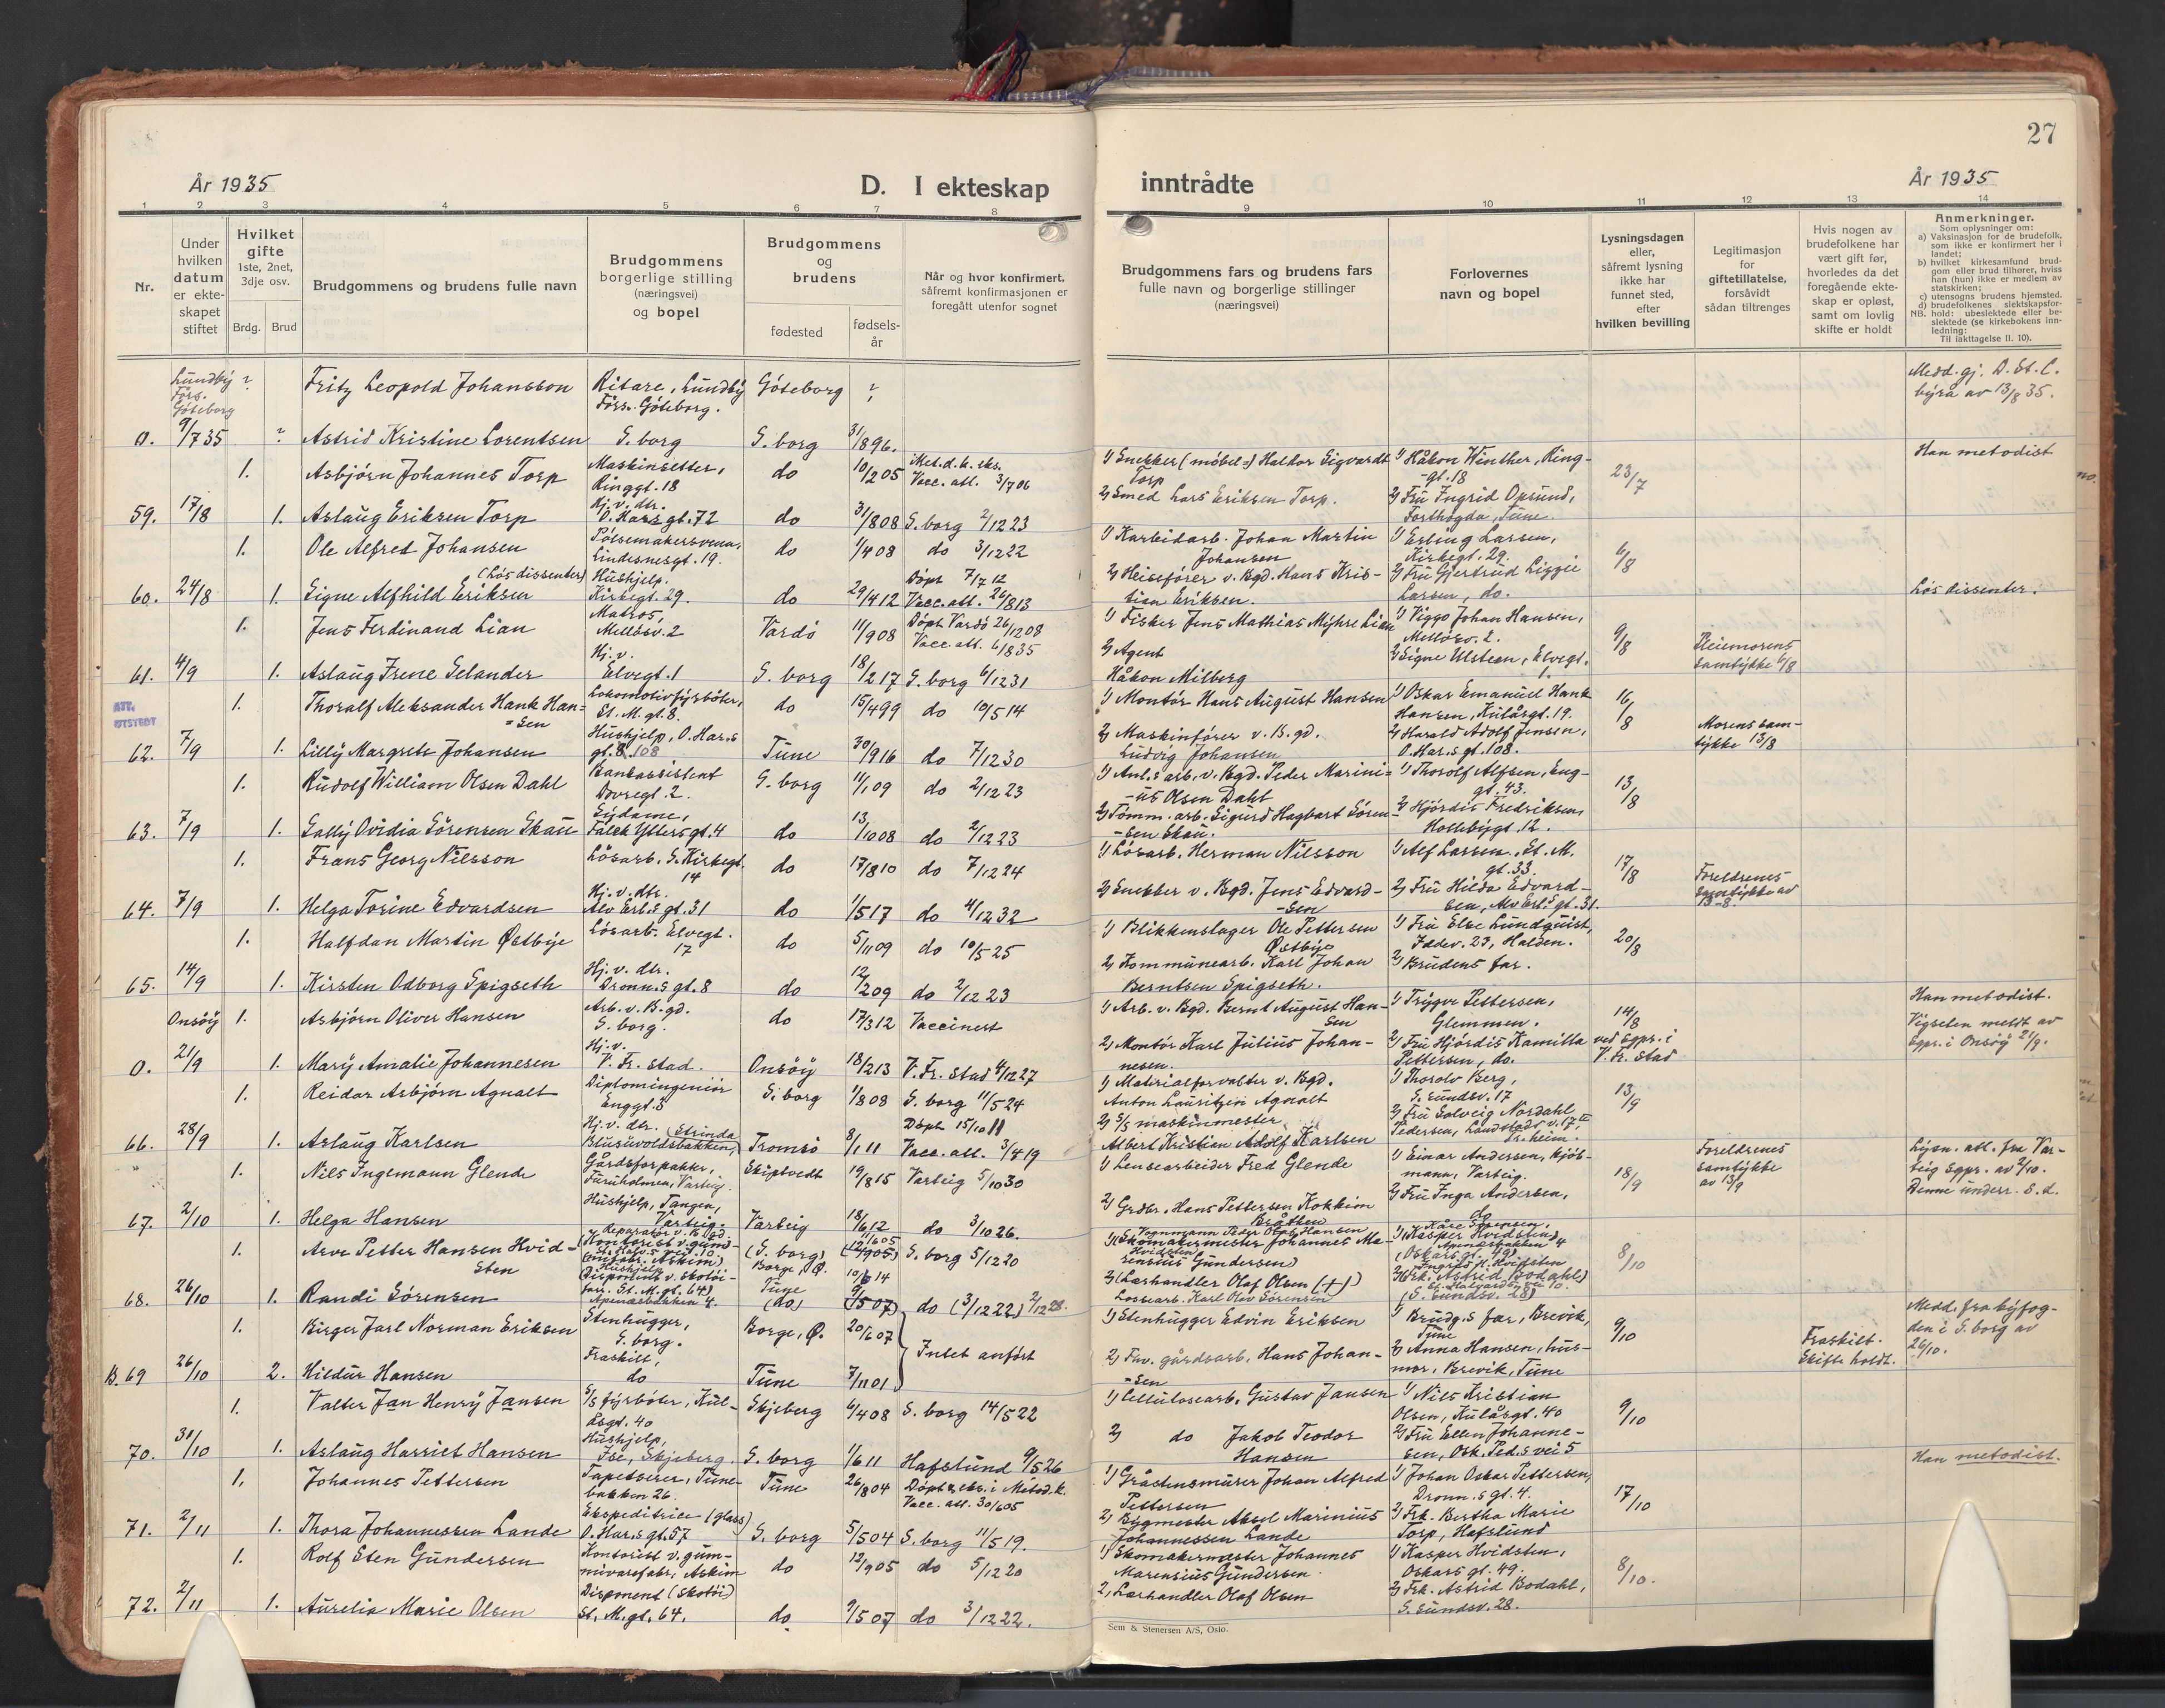 27
År 1935
D. I ekteskap
inntrådte
År 1935
1 2 3 4 5 6 7 8 9 10 11 12 13 14
Nr.
Under hvilken datum er ekte-skapet stiftet
Hvilket gifte 1ste, 2net, 3dje osv.
Brdg. Brud
Brudgommens og brudens fulle navn
Brudgommens borgerlige stilling (næringsvei) og bopel
Brudgommens og brudens
fødested
fødsels-år
Når og hvor konfirmert, såfremt konfirmasjonen er foregått utenfor sognet
Brudgommens fars og brudens fars fulle navn og borgerlige stillinger (næringsvei)
Forlovernes navn og bopel
Lysningsdagen eller, såfremt lysning ikke har funnet sted, efter hvilken bevilling
Legitimasjon for giftetillatelse, forsåvidt sådan tiltrenges
Hvis nogen av brudefolkene har vært gift før, hvorledes da det foregående ekte-skap er opløst, samt om lovlig skifte er holdt
Anmerkninger.
Som oplysninger om:
a) Vaksinasjon for de brudefolk, som ikke er konfirmert her i landet;
b) hvilket kirkesamfund brud-gom eller brud tilhører, hviss han (hun) ikke er medlem av statskirken;
c) utensogns brudens hjemsted.
d) brudefolkenes slektskapsfor-hold: ubeslektede eller be-slektede (se kirkebokens inn-ledning:
NB. Til iakttagelse II. 10).
Lundby Förs. Göteborg ? Fritz Leopold Johansson Ritare, Lundby Förs. Göteborg. Göteborg ? Medd. gj. D. St. C. byrå av 13/8 35.
0. 9/7 35 ? Astrid Kristine Lorentsen S. borg S. borg 31/8 96.
1. Asbjörn Johannes Torp Maskinsetter, Ringgt. 18 do 10/2 05 Met. d. k. eks. Vacc. att. 3/7 06 1) Snekker (möbel-) Halkor Sigvardt Torp 1) Håkon Winther, Ring-gt. 18 23/7 Han metodist
59. 17/8 1. Aslaug Eriksen Torp Hj. v. dtr. O. Hars gt. 72 do 31/8 08 S. borg 2/12 23 2) Smed Lars Eriksen Torp. 2) Fru Ingrid Opsund, Torthögda, Tune.
1. Ole Alfred Johansen Pölsemakersvenn, Lindesnesgt. 19. do 1/4 08 do 3/12 22 1) Karbidarb. Johan Martin Johansen 1) Erling Larsen, Kirkegt. 29. 6/8
60. 24/8 1. (Lös dissenter) Signe Alfhild Eriksen Hushjelp. Kirkegt. 29. do 29/4 12 Döpt 7/7 12 Vacc. att. 26/8 13 2) Heisefører v. Bgd. Hans Kris-tian Eriksen. 2) Fru Gjertrud Lizzie Larsen, do. Lös dissenter.
1. Jens Ferdinand Lian Matros, Mellösv. 2 Vardö 11/9 08 Döpt Vardö 26/12 08 Vacc. att. 6/8 35 1) Fisker Jens Mathias Myhre Lian 1) Viggo Johan Hansen, Mellösv. 2. 9/8 Pleiemorens samtykke 6/8
61. 4/9 1. Aslaug Irene Selander Hj. v. Elvegt. 1 S. borg 18/2 17 S. borg 6/12 31 2) Agent Håkon Milberg 2) Signe Ulsteen, Elvegt. 1.
ATT. UTSTEDT
1. Thoralf Aleksander Hank Han=sen Lokomotivfyrböter, St. M. gt. 8. do 15/4 99 do 10/5 14 1) Montör Hans August Hansen 1) Oskar Emanuel Hank Hansen, Kulåsgt. 19. 16/8
62. 7/9 1. Lilly Margrete Johansen Hushjelp, O. Har.s gt. 108 Tune 30/9 16 do 7/12 30 2) Maskinförer v. B. gd. Ludvig Johansen 2) Harald Adolf Jensen, O. Har.s gt. 108. Morens sam-tykke 13/8
1. Rudolf William Olsen Dahl Bankassistent Dovregt. 2. S. borg 11/1 09 do 2/12 23 1) Anl.s arb. v. Bgd. Peder Marini=us Olsen Dahl 1) Thorolf Alfsen, Eng-gt. 43. 13/8
63. 7/9 1. Sally Ovidia Sörensen Skau Sydame, Falck Yttersgt. 4 do 13/10 08 do 2/12 23 2) Tömm. arb. Sigurd Hagbart Sören-sen Skau. 2) Hjördis Fredriksen, Hollebygt. 12.
1. Frans Georg Nilsson Lösarb. S. Kirkegt. 14 do 17/8 10 do 7/12 24 1) Lösarb. Herman Nilsson 1) Alf Larsen. St. M. gt. 33. 17/8 Foreldrenes samtykke av 13-8.
64. 7/9 1. Helga Torine Edvardsen Hj. v. dtr. Alv Erl.s gt. 31 do 1/5 17 do 4/12 32 2) Snekker v. Bgd. Jens Edvard-sen 2) Fru Hilda Edvard-sen, Alv Erl.s gt. 31.
1. Halfdan Martin Østbye Lösarb. Elvegt. 17 do 5/11 09 do 10/5 25 1) Blikkenslager Ole Pettersen Østbye 1) Fru Else Lundquist, Iddev. 23, Halden. 20/8
65. 14/9 1. Kirsten Odborg Spigseth Hj. v. dtr. Dronn.s gt. 8 do 12/2 09 do 2/12 23 2) Kommunearb. Karl Johan Berntsen Spigseth. 2) Brudens far.
Onsöy 1. Asbjörn Oliver Hansen Arb. v. B. gd. S. borg. do 17/3 12 Vaccinert 1) Arb. v. Bgd. Bernt August Han-sen 1) Trygve Pettersen, Glemmen. 14/8 ved Sgpr. i V. Fr. stad Han metodist. Vigselen meldt av Sgpr. i Onsöy 21/9.
0. 21/9 1. Mary Amalie Johannesen Hj. v. V. Fr. stad. Onsöy 18/2 13 V. Fr. stad 4/12 27 2) Montör Karl Julius Johan-nesen. 2) Fru Hjördis Kamilla Pettersen, do.
1. Reidar Asbjörn Agnalt Diplomingeniör Enggt. 8 S. borg 1/8 08 S. borg 11/5 24 1) Materialforvalter v. Bgd. Anton Lauritzen Agnalt 1) Thorolv Berg, S. sundsv. 17 13/9
66. 28/9 1. Aslaug Karlsen Hj. v. dtr. (Strinda Blusuvoldsbakken, Tromsö 8/1 11 Döpt 15/10 11 Vacc. att. 3/4 19 2) S/S maskinmester Albert Kristian Adolf Karlsen 2) Fru Solveig Nordahl Pedersen, Landstads v. 17, II Tr.heim.
1. Nils Ingemann Glende Gårdsforpakter, Furuholmen, Varteig. Skiptvedt 19/8 15 Varteig 5/10 30 1) Lensearbeider Fred Glende 1) Einar Andersen, kjöb-mann, Varteig. 18/9 Foreldrenes samtykke av 13/9 Lysn. att. fra Var-teig Sgpr. av 2/10. Denne underr. s. d.
67. 2/10 1. Helga Hansen Hushjelp, Tangen, Varteig. Varteig 18/6 12 do 3/10 26. 2) Grdbr. Hans Pettersen Kokkim Bråtten 2) Fru Inga Andersen, do
1. Arve Petter Hansen Hvid-sten Reparatör v. B. gd. (Kontorist v. gum-mifabr. Askim) (S. borg) Borge, Ø. 11/6 05 (12/9 05) S. borg 5/12 20 1) Formann Peder Olaf Hansen Hvidsten (Skomakermester Johannes Ma-rensius Gundersen) 1) Kåre Sörensen, Apenesbakken 4 (Kasper Hvidsten, Oskars gt. 49) 8/10
68. 26/10 1. Randi Sörensen Hushjelp (Disponent v. skotöi-forr. St. M. gt. 64) Apenesbakken 4. Tune (do) 10/6 14 (9/5 07) do (3/12 22) 2/12 28. 2) (Lærhandler Olaf Olsen (+)) Lossearb. Karl Olav Sörensen 2) (Frk. Astrid Bodahl) (S. Sundsv. 28)
1. Birger Jarl Norman Eriksen Stenhugger, S. borg. Borge, Ø. 20/6 07 Intet anfört 1) Stenhugger Edvin Eriksen 1) Brudg.s far, Brevik, Tune 9/10 Medd. fra byfog-den i S. borg av 26/10.
B. 69 26/10 2. Hildur Hansen Fraskilt, do Tune 7/11 01 2) Fhv. gårdsarb. Hans Johan-sen 2) Anna Hansen, hus-mor, Brevik, Tune Fraskilt. Skifte holdt.
1. Valter Jan Henry Jansen S/S fyrböter, Kul-åsgt. 40 Skjeberg 6/4 08 S. borg 14/5 22 1) Cellulosearb. Gustav Jansen 1) Nils Kristian Olsen, Kulåsgt. 40 9/10
70. 30/10 1. Aslaug Harriet Hansen Hushjelp, Ise, Skjeberg. S. borg 1/6 11 Hafslund 9/5 26 2) do Jakob Teodor Hansen 2) Fru Ellen Johanne-sen, Osk. Ped.s vei 5
1. Johannes Pettersen Tapetserer, Tune-bakken 26. Tune 26/8 04 Döpt & eks. i Metod. k. Vacc. att. 30/6 05 1) Gråstensmurer Johan Alfred Pettersen 1) Johan Oskar Pettersen, Dronn.s gt. 4. 17/10 Han metodist.
71. 2/11 1. Thora Johannessen Lande Ekspeditrice (glass) O. Har.s gt. 57 S. borg 5/5 04 S. borg 11/5 19. 2) Bygmester Aksel Marinius Johannessen Lande 2) Frk. Bertha Marie Torp, Hafslund
1. Rolf Sten Gundersen Kontorist v. gum-mivarefabr., Askim do 12/9 05 do 5/12 20 1) Skomakermester Johannes Marensius Gundersen. 1) Kasper Hvidsten, Oskars gt. 49. 8/10.
72. 2/11 1. Aurelia Marie Olsen Disponent (skotöi) St. M. gt. 64. do 9/5 07 do 3/12 22. 2) Lærhandler Olaf Olsen 2) Frk. Astrid Bodahl, S. sundsv. 28.
Sem & Stenersen A/S, Oslo.